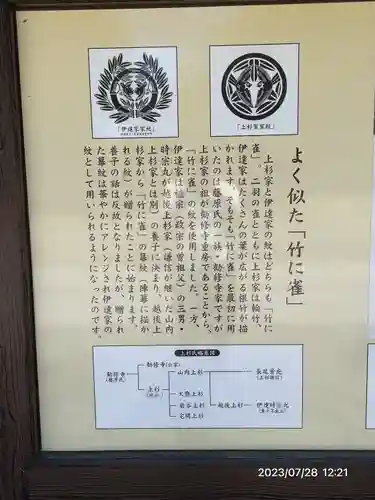 「伊達家家紋」
「上杉家家紋」
よく似た「竹に雀」
上杉家と伊達家の紋はどちらも「竹に
雀」。二羽の雀とともに上杉家は輪竹、
伊達家はたくさんの葉が広がる根竹が描
かれます。そもそも「竹に雀」を最初に用
いたのは藤原氏の一族・勧修寺家ですが
上杉家の祖が勧修寺重房であることから、
「竹に雀」の紋を使用しました。一方、
伊達家は稙宗(政宗の曽祖父)の三男・
時宗丸が越後上杉家(謙信が継いだ山内
上杉家とは別)の養子に決まり、越後上
杉家から「竹に雀」の幕紋(陣幕に描か
れる紋)が贈られたことに始まります。
養子の話は反故となりましたが、贈られ
た幕紋は華やかにアレンジされ伊達家の
紋として用いられるようになったのです。
上杉氏略系図
勧修寺
(藤原氏)
勧修寺(公家)
上杉
(武士)
山内上杉
長尾景虎
(上杉謙信)
犬懸上杉
越後上杉
伊達時宗丸
宅間上杉
2023/07/28 12:21